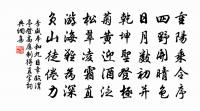 重陽乘令序
四野開晴色
日月數初并
乾坤聖登極
菊黃迎酒泛
松翠凌霜直
游海難為深
負山徒倦力
李咸奉和九日幸臨渭
亭登高應制得直字